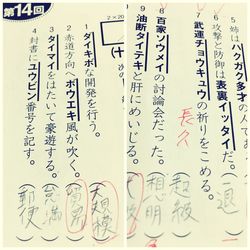 第14回
2×20
次の
1 ダイキボな開発を行う。
大規模
2 赤道方向へボウエキ風が吹く。
貿易
3 タイマイをはたいて豪遊する。
4 封書にユウビン番号を記す。
郵便
5 姉はハクガク多才の人
6 攻撃と防御は表裏イッタイだ。
一退
7 武運チョウキュウの祈りをこめる。
長久
超級
8 百家ソウメイの討論会だった。
想明
9 油断タイテキと肝にめいじる。